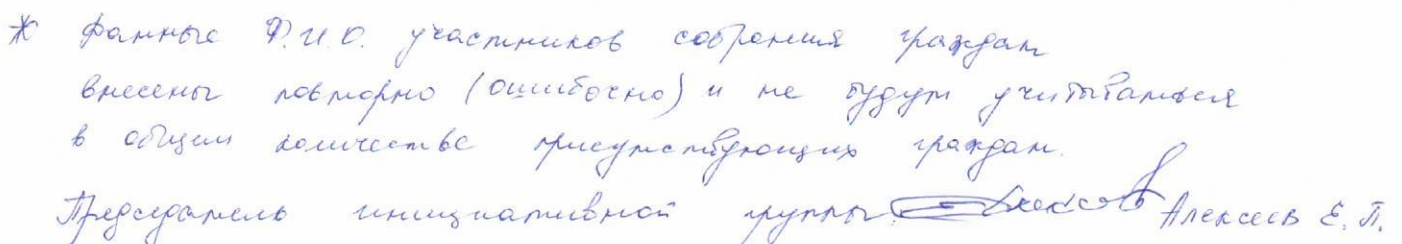 * Данные Ф.И.О. участников собрания граждан
внесены повторно (ошибочно) и не будут учитываться
в общем количестве присутствующих граждан.
Председатель инициативной группы Алексеев Е. П.